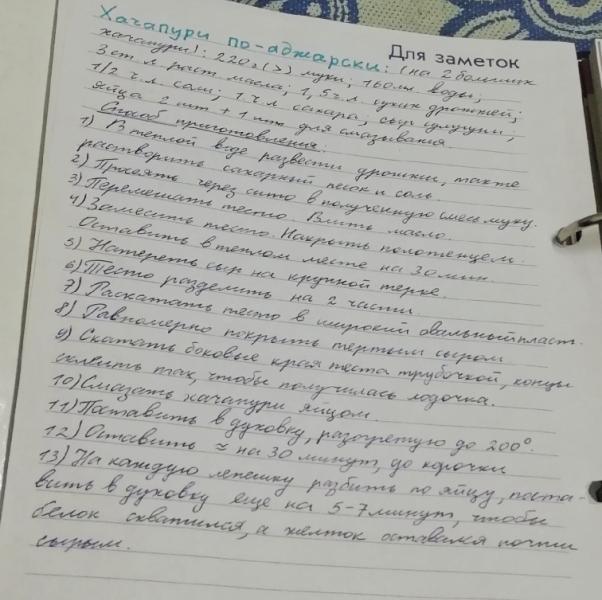 Для заметок
Хачапури по-аджарски: (на 2 больших
хачапури): 220 г (>) муки; 160 мл воды;
3 ст. л. раст. масла; 1,5 ч.л. сухих дрожжей;
1/2 ч. л. соли; 1 ч. л. сахара; сыр сулугуни;
яйца 2 шт + 1 шт для смазывания.
Способ приготовления:
1) В теплой воде развести дрожжи, также
растворить сахарный песок и соль.
2) Просеять через сито в полученную смесь муку.
3) Перемешать тесто. Влить масло.
4) Замесить тесто. Накрыть полотенцем.
Оставить в теплом месте на 30 мин.
5) Натереть сыр на крупной терке.
6) Тесто разделить на 2 части.
7) Раскатать тесто в широкий овальный пласт.
8) Равномерно покрыть тертым сыром
9) Скатать боковые края теста трубочкой, концы
склеить так, чтобы получилась лодочка.
10) Смазать хачапури яйцом.
11) Поставить в духовку, разогретую до 200°.
12) Оставить ≈ на 30 минут, до корочки
13) На каждую лепешку разбить по яйцу, поста-
вить в духовку еще на 5-7 минут, чтобы
белок схватился, а желток оставался почти
сырым.